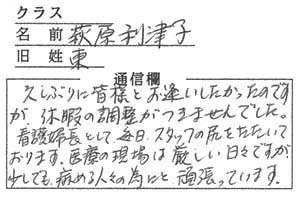 クラス
名前 萩原利津子
旧姓 東
通信欄
久しぶりに皆様とお逢いしたかったのです
が、休暇の調整がつきませんでした。
看護婦長として、毎日、スタッフの尻をたたいて
おります。医療の現場は厳しい日々ですが
少しでも、病める人々の為にと頑張っています。